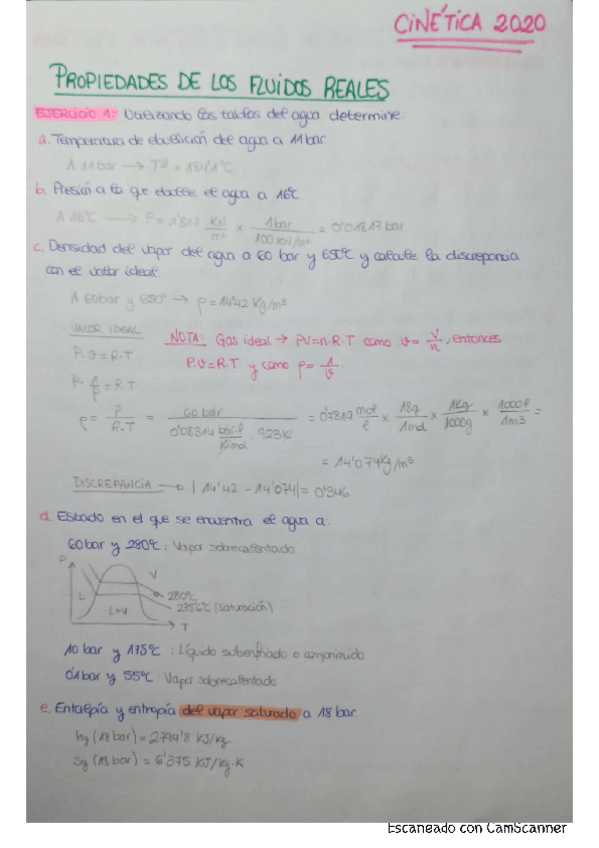 CINÉTICA 2020
PROPIEDADES DE LOS FLUIDOS REALES
EJERCICIO 1: Utilizando las tablas del agua determine:
a. Temperatura de ebullición del agua a 11 bar
A 11 bar → Tª = 184'1ºC
b. Presión a la que ebulle el agua a 16ºC
A 16ºC → P = 1'817 KN/m² × 1 bar / 100 KN/m² = 0'01817 bar
c. Densidad del vapor del agua a 60 bar y 650ºC y calcule la discrepancia
con el valor ideal.
A 60 bar y 650º → ρ = 14'42 Kg/m³
VALOR IDEAL
NOTA: Gas ideal → PV=n.R.T como v = V/n, entonces
P.v = R.T
P.v=R.T y como ρ = 1/v.
P. 1/ρ = R.T
ρ = P/R.T = 60 bar / 0'08314 bar.l/K.mol . 923K = 0'7819 mol/l × 18g/1mol × 1kg/1000g × 1000l/1m3 =
= 14'074 Kg/m³
DISCREPANCIA → | 14'42 - 14'074| = 0'346
d. Estado en el que se encuentra el agua a:
60 bar y 280ºC : Vapor sobrecalentado
P
V
L
L+V
280ºC
275'6ºC (saturación)
T
10 bar y 175ºC : Líquido subenfriado o comprimido
0'1 bar y 55ºC : Vapor sobrecalentado
e. Entalpía y entropía del vapor saturado a 18 bar
hg (18 bar) = 2794'8 KJ/kg
sg (18 bar) = 6'375 KJ/kg.K
Escaneado con CamScanner